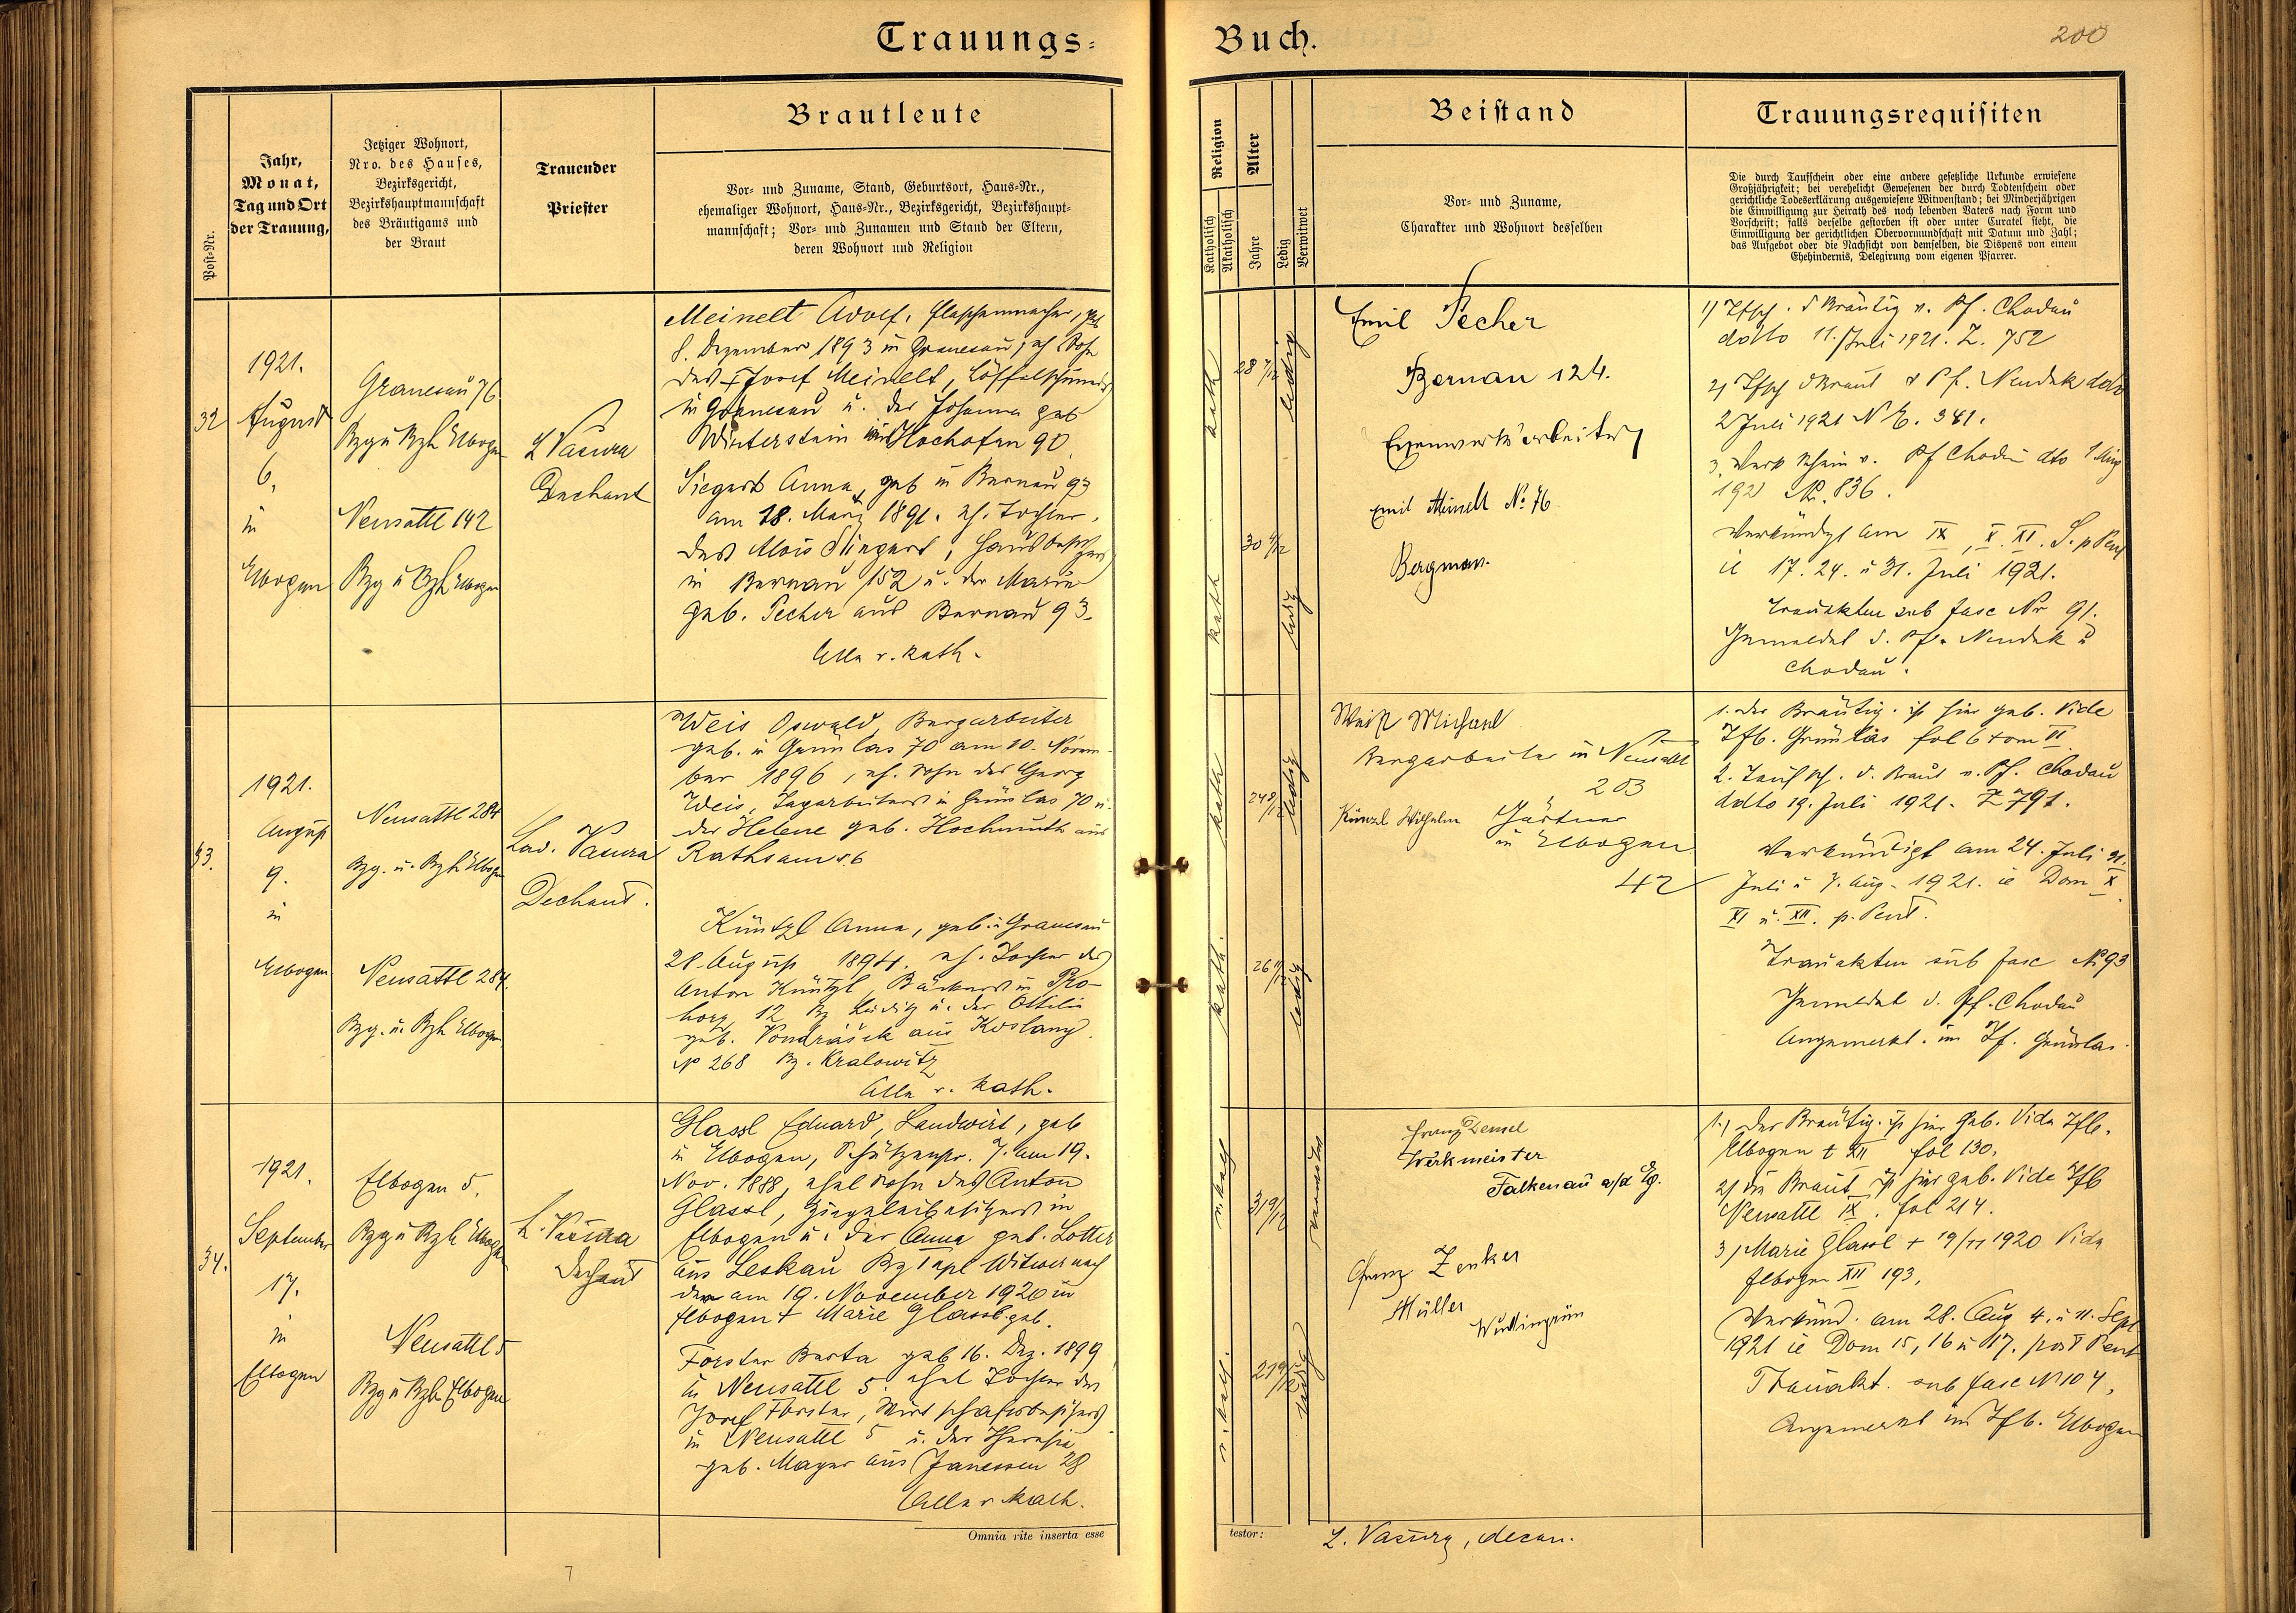 Trauungs=
Buch.
200
Post-Nr.
Jahr,
Monat,
Tag und Ort
der Trauung,
Jetziger Wohnort,
Nro. des Hauses,
Bezirksgericht,
Bezirkshauptmannschaft
des Bräutigams und
der Braut
Trauender
Priester
Brautleute
Vor- und Zuname, Stand, Geburtsort, Haus-Nr.,
ehemaliger Wohnort, Haus-Nr., Bezirksgericht, Bezirkshaupt-
mannschaft; Vor- und Zunamen und Stand der Eltern,
deren Wohnort und Religion
Religion
Katholisch
Akatholisch
Alter
Jahre
Ledig
Verwitwet
Beistand
Vor- und Zuname,
Charakter und Wohnort desselben
Trauungsrequisiten
Die durch Taufschein oder eine andere gesetzliche Urkunde erwiesene
Großjährigkeit; bei verehelicht Gewesenen der durch Todtenschein oder
gerichtliche Todeserklärung ausgewiesene Witwenstand; bei Minderjährigen
die Einwilligung zur Heirath des noch lebenden Vaters nach Form und
Vorschrift; falls derselbe gestorben ist oder unter Curatel steht, die
Einwilligung der gerichtlichen Obervormundschaft mit Datum und Zahl;
das Aufgebot oder die Nachsicht von demselben, die Dispens von einem
Ehehindernis, Delegirung vom eigenen Pfarrer.
32
1921.
August
6.
in
Elbogen
Granesau 76
Bzg u Bzh Elbogen
Neusattl 142
Bzg u Bzh Elbogen
L Vačura
Dechant
Meinelt Adolf, Flaschenmacher, geb
8. Dezember 1893 in Granesau, eh Sohn
des † Josef Meinelt, Löffelschmied
in Granesau u. der Johanna geb
Winterstein Hochofen 90.
Siegert Anna, geb in Bernau 93
am 18. März 1891. eh. Tochter
des Alois Siegert, Hausbesitzers
in Bernau 152 u. der Marie
geb. Pecher aus Bernau 93.
Alle r. kath.
kath
28
ledig
kath
30
ledig
Emil Pecher
Bernau 124.
Eisenwerksarbeiter
Emil Meinelt No. 76
Bergman.
1) Tfsch. d Bräutig v. Pf. Chodau
ddto 11. Juli 1921. Z. 752
2) Tfsch d Braut d Pf. Neudek ddo
2 Juli 1921 N E. 341.
3. Verk schein v. Pf Chodau dto 1 Aug
192 No. 836.
Verkündigt am IX, X. XI. S. p Pent
ie 17. 24. u 31. Juli 1921.
Trauakten sub fasc Nr 91.
Gemeldet d. Pf. Neudek u
Chodau.
33.
1921.
August
9.
in
Elbogen
Neusattl 284
Bzg. u. Bzh Elbogen
Neusattl 284.
Bzg. u. Bzh Elbogen
Lad. Vačura
Dechant.
Weis Oswald, Bergarbeiter
geb. in Grünlas 70 am 10. Novem-
ber 1896, eh. Sohn des Georg
Weis, Tagarbeiters in Grünlas 70 u.
der Helene geb. Hochmuth aus
Rathsam 86
Küntzl Anna, geb. in Granesau
28. August 1894. eh. Tochter des
Anton Küntzl, Bäckers in Pro-
horz 12 Bz Luditz u. der Ottilie
geb. Vondrášek aus Koslany
No 268 Bz. Kralowitz
Alle r. kath.
kath
24
ledig
kath.
26
ledig
Weiß Michael
Bergarbeiter in Neusattl
203
Künzl Wilhelm Gärtner
in Elbogen
42
1. Der Bräutig. ist hier geb. Vide
Tfb. Grünlas fol 6 tom II
2. Taufsch. d. Braut v. Pf. Chodau
ddto 19. Juli 1921. Z 791.
Verkündigt am 24. Juli 31.
Juli u 7. Aug. 1921. ie Dom X
XI u. XII. p. Pent.
Trauakten sub fasc No 93
Gemeldet d. Pf. Chodau
Angemerkt. im Tf. Grünlas.
34.
1921.
September
17.
in
Elbogen
Elbogen 5.
Bzg u Bzh Elbogen
Neusattl 5
Bzg u Bzh Elbogen
L. Vačura
Dechant
Glassl Eduard, Landwirt, geb
in Elbogen, 7. am 19.
Nov. 1888, ehel Sohn des Anton
Glassl, Ziegeleibesitzers in
Elbogen u. der Anna geb. Lotter
aus Leskau Bz Tepl Witwer nach
der am 19. November 1920 in
Elbogen † Marie Glassl geb.
Forster Berta geb 16. Dez. 1899
in Neusattl 5. ehel Tochter des
Josef Forster, Wirtschaftsbesitzers
in Neusattl 5 u. der Theresia
geb. Mayer aus Janessen 28
Alle r kath.
r. kath
31
verwitw
r. kath.
21
ledig
Franz Densel
Werkmeister
Falkenau a/d Eg.
Franz Zenker
Müller
Wudingrün
1.) Der Bräutig. ist hier geb. Vide Tfb.
Elbogen t XII fol 130.
2) Die Braut ist hier geb. Vide Tfb
Neusattl IX. fol 214.
3) Marie Glassl † 19/11 1920 Vide
Elbogen XII 193.
Verkünd. am 28. Aug 4. u 11. Sept
1921 ie Dom 15, 16 u 17. post Pent
Trauakt. sub fasc No 104,
Angemerkt im Tfb. Elbogen
Omnia rite inserta esse
testor:
L. Vačura, decan.
7